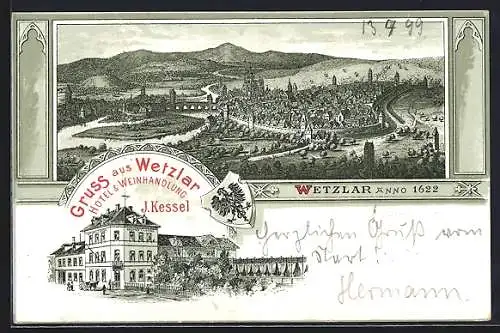 13 7 99
WETZLAR ANNO 1622
Gruss aus Wetzlar
HOTEL & WEINHANDLUNG
J. Kessel
Herzlichen Gruß vom
Start!
Hermann.